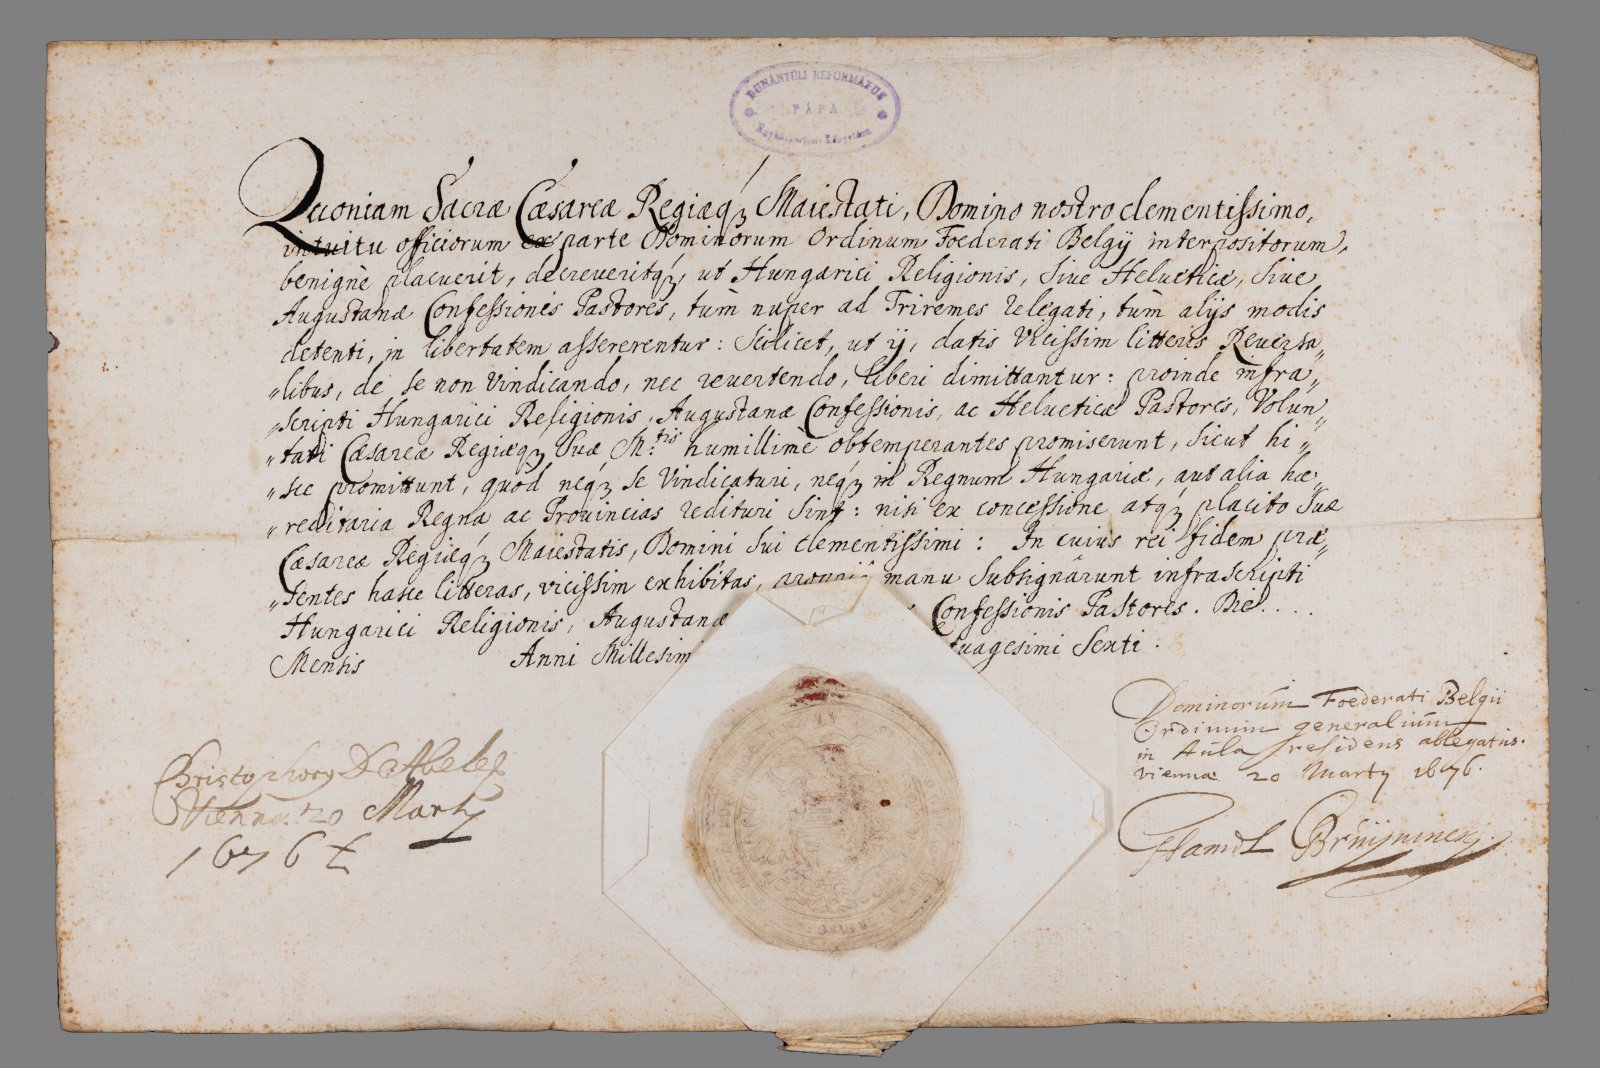 DUNÁNTÚLI REFORMÁTUS
PÁPA
Quoniam Sacræ Cæsareæ Regiæq3 Maiestati, Domino nostro clementissimo,
intuitu officiorum ex parte Dominorum Ordinum Foederati Belgij interpositorum,
benignè placuerit, decreueritq3, ut Hungarici Religionis, siue Helueticæ, siue
Augustanæ Confessionis Pastores, tùm nuper ad Triremes relegati, tùm alijs modis
detenti, in libertatem assererentur: Scilicet, ut ij, datis Vicissim litteris Reuersa„
„libus, de se non Vindicando, nec reuertendo, liberi dimittantur: proinde infra„
„scripti Hungarici Religionis, Augustanæ Confessionis, ac Helueticæ Pastores, Volun„
„tati Cæsareæ Regiæq3 Suæ M.tis humillimè obtemperantes promiserunt, sicut hi„
„sce promittunt, quòd neq3 se Vindicaturi, neq3 in Regnum Hungariæ, aut alia hæ„
„reditaria Regna ac Prouincias redituri sint: nisi ex concessione atq3 placito Suæ
Cæsareæ Regiæq3 Maiestatis, Domini sui clementissimi: In cuius rei fidem præ„
„sentes hasce litteras, vicissim exhibitas, manu subsignârunt infrascripti
Hungarici Religionis, Augustanæ Confessionis Pastores. Die....
Mensis Anni Millesim uagesimi Sexti.
Dominorum Foederati Belgii
Ordinum generalium
in Aula residens ablegatus.
Viennæ 20 Martij 1676.
Hamel Bruijninex
Christophorg D Abele
Viennæ 20 Martij
1676